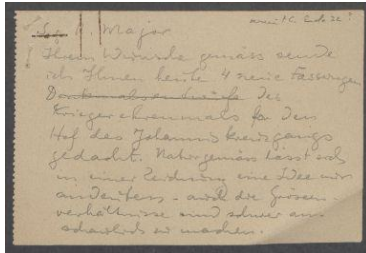 S. H. Major
Ihrem Wunsche gemäss sende
ich Ihnen heute 4 neue Fassungen
des
Kriegerehrenmals für den
Hof des Johanniskreuzgangs
gedacht. Naturgemäss lässt sich
in einer Zeichnung eine Idee nur
andeuten - auch die Grössen-
verhältnisse sind schwer an-
schaulich zu machen.